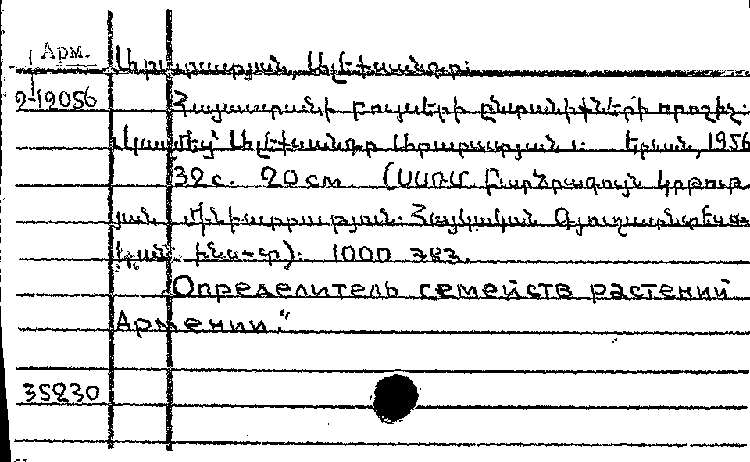 Арм.
Արարատյան, Ալեքսանդր.
2-19056
Հայաստանի բույսերի ընտանիքների որոշիչ:
Կազմեց՝ Ալեքսանդր Արարատյան: Երևան, 1956
32с. 20см (ՍՍՌՄ Բարձրագույն կրթութ
յան Մինիստրություն. Հայկական Գյուղատնտեսա
կան ինս-տ). 1000 экз.
"Определитель семейств растений
Армении."
35230